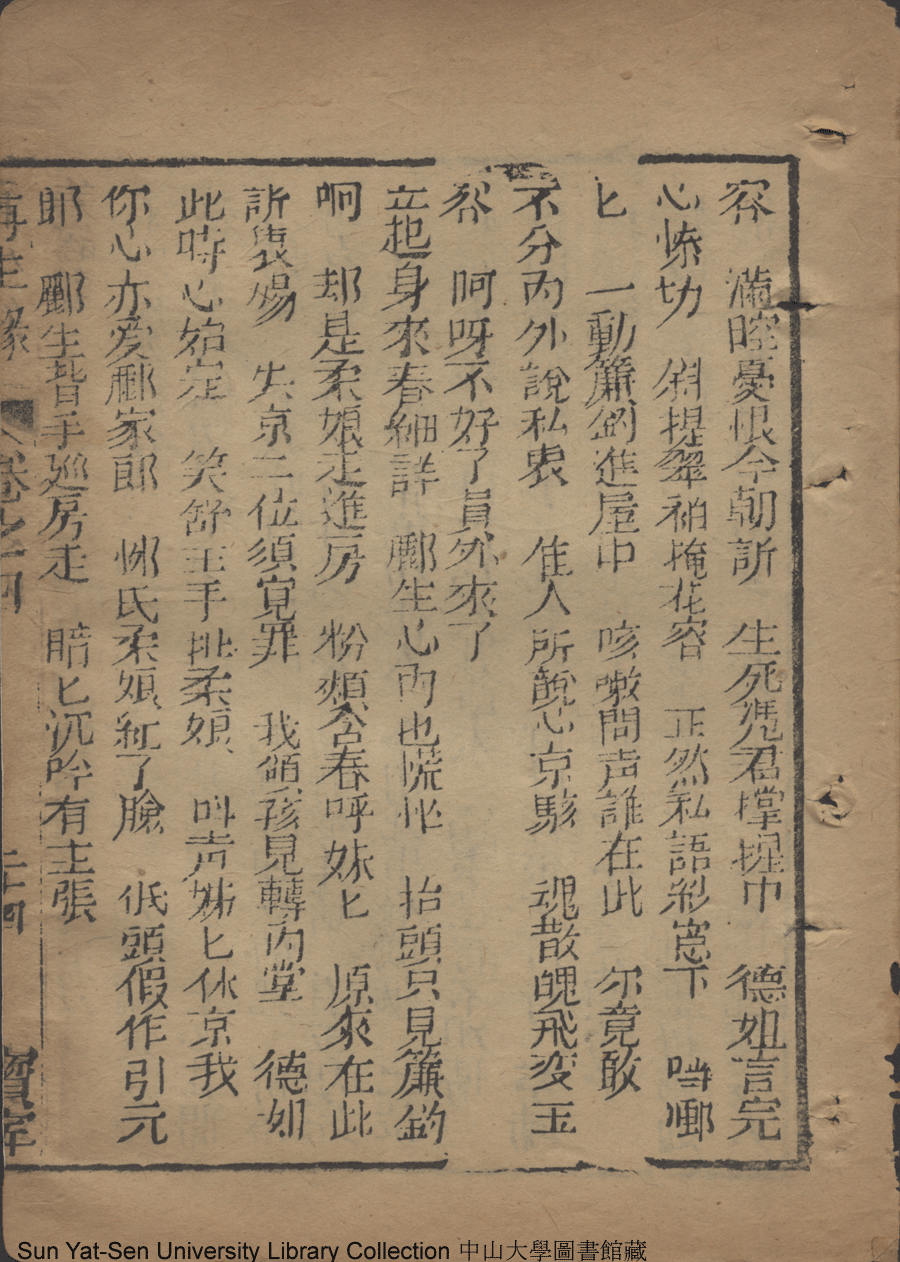 容 滿腔憂恨今朝訴 生死凭君掌握中 德姐言完
心慘切 斜提翠袖掩花容 正然私語紗窓下 噹啷
匕 一動簾鈎進屋中 咳嗽問声誰在此 尔竟敢
不分內外說私衷 佳人所說心京駭 魂散魄飛变玉
容 呵呀不好了員外來了
立起身來春細詳 酈生心內也慌忙 抬頭只見簾鈎
响 却是柔娘走進房 粉頰含春呼妹匕 原來在此
訴衷腸 失京二位須寬罪 我領孩兒轉內堂 德姐
此時心始定 笑舒玉手批柔娘 叫声姊匕休京我
你心亦爱酈家郎 氏柔娘紅了臉 低頭假作引元
郎 酈生背手廵房走 暗匕沉吟有主張
再生緣 卷之十四 二十四 寳寧